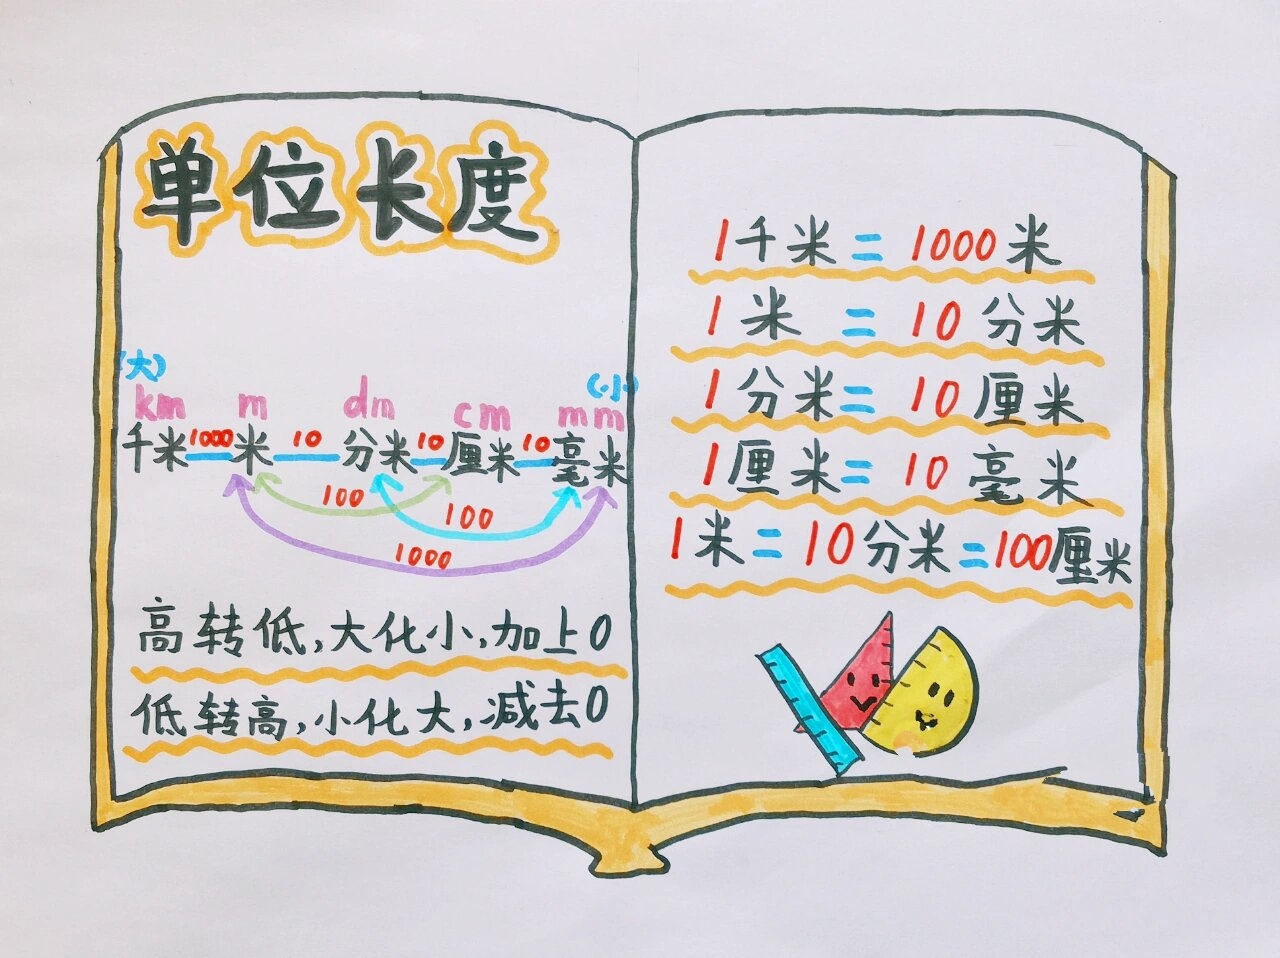 单位长度
(大)
(小)
km m dm cm mm
千米 1000 米 10 分米 10 厘米 10 毫米
100
100
1000
高转低,大化小,加上0
低转高,小化大,减去0
1千米=1000米
1米=10分米
1分米=10厘米
1厘米=10毫米
1米=10分米=100厘米